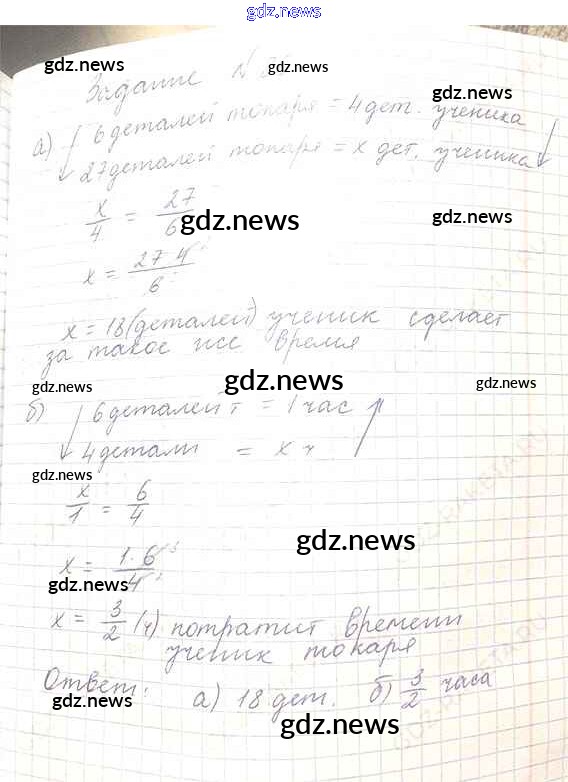 gdz.news
gdz.news
gdz.news
Задание №
gdz.news
а) 6 деталей токаря = 4 дет. ученика
27 деталей токаря = x дет. ученика
x/4 = 27/6
gdz.news
gdz.news
x = 27·4/6
x = 18 (деталей) ученик сделает
за такое же время
gdz.news
gdz.news
gdz.news
б) 6 деталей т = 1 час
4 детали = x ч
gdz.news
x/1 = 6/4
gdz.news
x = 1·6/4
gdz.news
x = 3/2 (ч) потратит времени
ученик токаря
Ответ: а) 18 дет. б) 3/2 часа
gdz.news
gdz.news